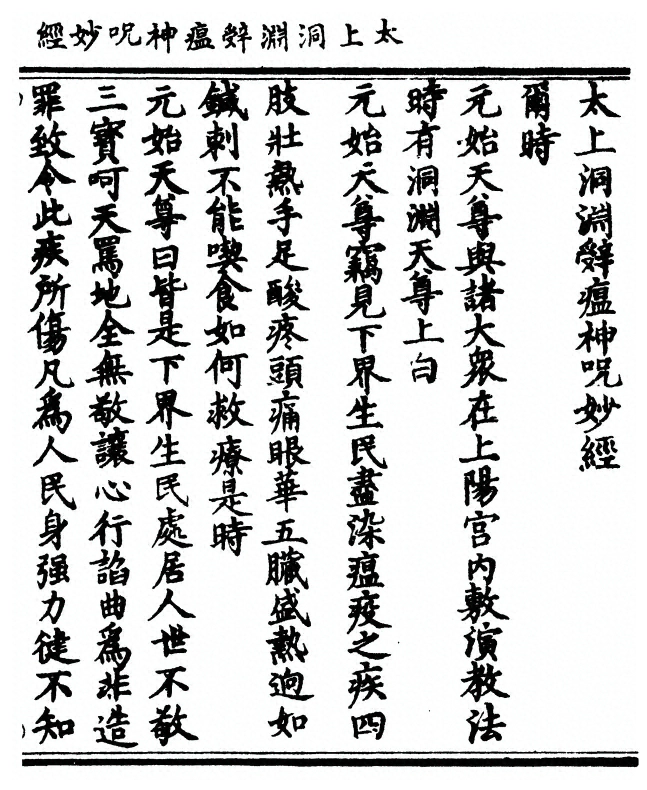 太上洞淵辤瘟神呪妙經
太上洞淵辤瘟神呪妙經
爾時
元始天尊與諸大衆在上陽宮內敷演教法
時有洞淵天尊上白
元始天尊竊見下界生民盡染瘟疫之疾四
肢壯熱手足酸疼頭痛眼華五臟盛熱逈如
鍼刺不能喫食如何救療是時
元始天尊曰皆是下界生民處居人世不敬
三寶呵天罵地全無敬讓心行諂曲爲非造
罪致令此疾所傷凡爲人民身强力徤不知